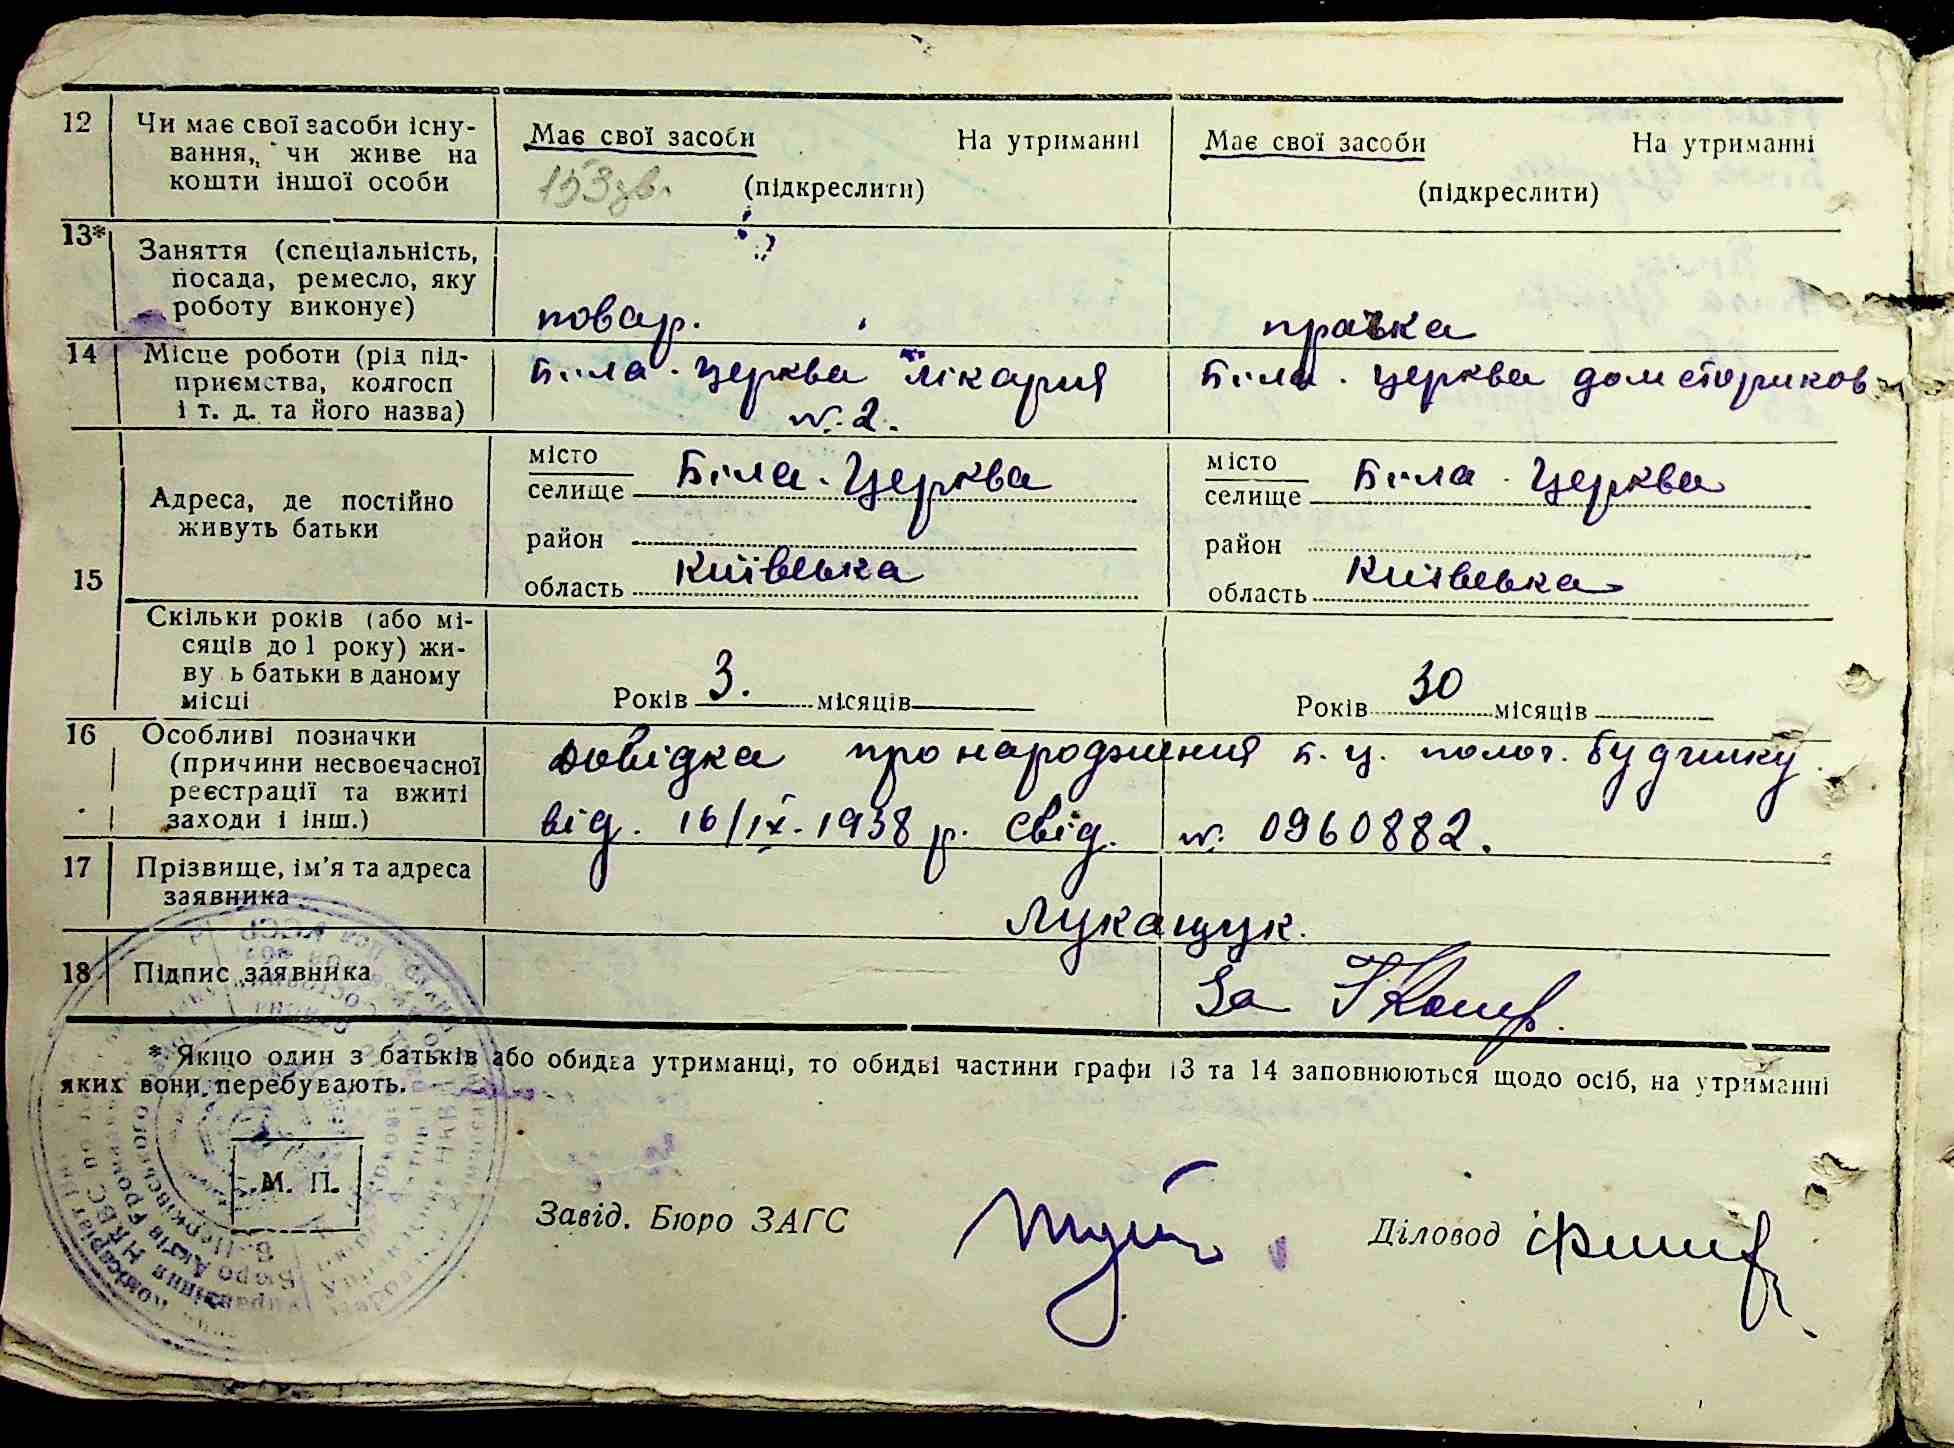 12 Чи має свої засоби існу-
вання, чи живе на
кошти іншої особи
Має свої засоби На утриманні
(підкреслити)
Має свої засоби На утриманні
(підкреслити)
13* Заняття (спеціальність,
посада, ремесло, яку
роботу виконує)
повар.
прачка
14 Місце роботи (рід під-
приємства, колгосп
і т. д. та його назва)
Біла. Церква лікарня
№. 2.
Біла. Церква дом стариков
15 Адреса, де постійно
живуть батьки
місто
селище Біла. Церква
район
область Київська
місто
селище Біла. Церква
район
область Київська
Скільки років (або мі-
сяців до 1 року) жи-
ву ь батьки в даному
місці
Років 3. місяців
Років 30 місяців
16 Особливі позначки
(причини несвоєчасної
реєстрації та вжиті
заходи і інш.)
Довідка про народження Б. Ц. полог. будинку
від. 16/IX. 1938 р. Свід. №. 0960882.
17 Прізвище, ім'я та адреса
заявника
Лукащук.
18 Підпис заявника
За
* Якщо один з батьків або обидва утриманці, то обидві частини графи 13 та 14 заповнюються щодо осіб, на утриманні
яких вони перебувають.
М. П.
Завід. Бюро ЗАГС
Діловод